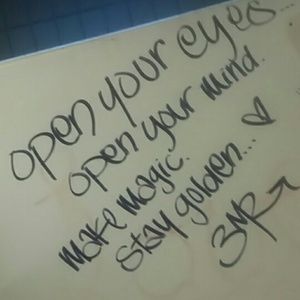 open your eyes...
open your mind.
make magic.
stay golden... ♡